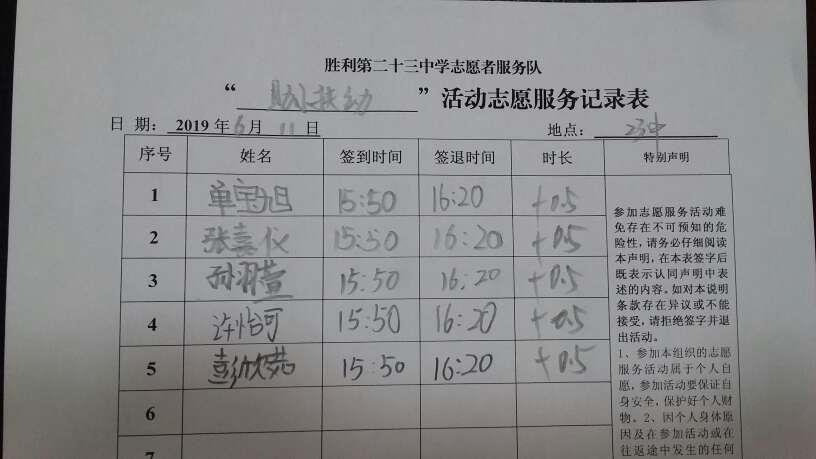 胜利第二十三中学志愿者服务队
“ ” 活动志愿服务记录表
日 期： 2019 年 6 月 11 日 地点： 23中
序号 姓名 签到时间 签退时间 时长 特别声明
1 单宝旭 15:50 16:20 +0.5
2 张嘉仪 15:50 16:20 +0.5
3 孙羽萱 15:50 16:20 +0.5
4 许怡可 15:50 16:20 +0.5
5 彭欣茹 15:50 16:20 +0.5
6
7
参加志愿服务活动难
免存在不可预知的危
险性，请务必仔细阅读
本声明，在本表签字后
既表示认同声明中表
述的内容。如对本说明
条款存在异议或不能
接受，请拒绝签字并退
出活动。
1、参加本组织的志愿
服务活动属于个人自
愿，参加活动要保证自
身安全，保护好个人财
物。2、因个人身体原
因及在参加活动或在
往返途中发生的任何